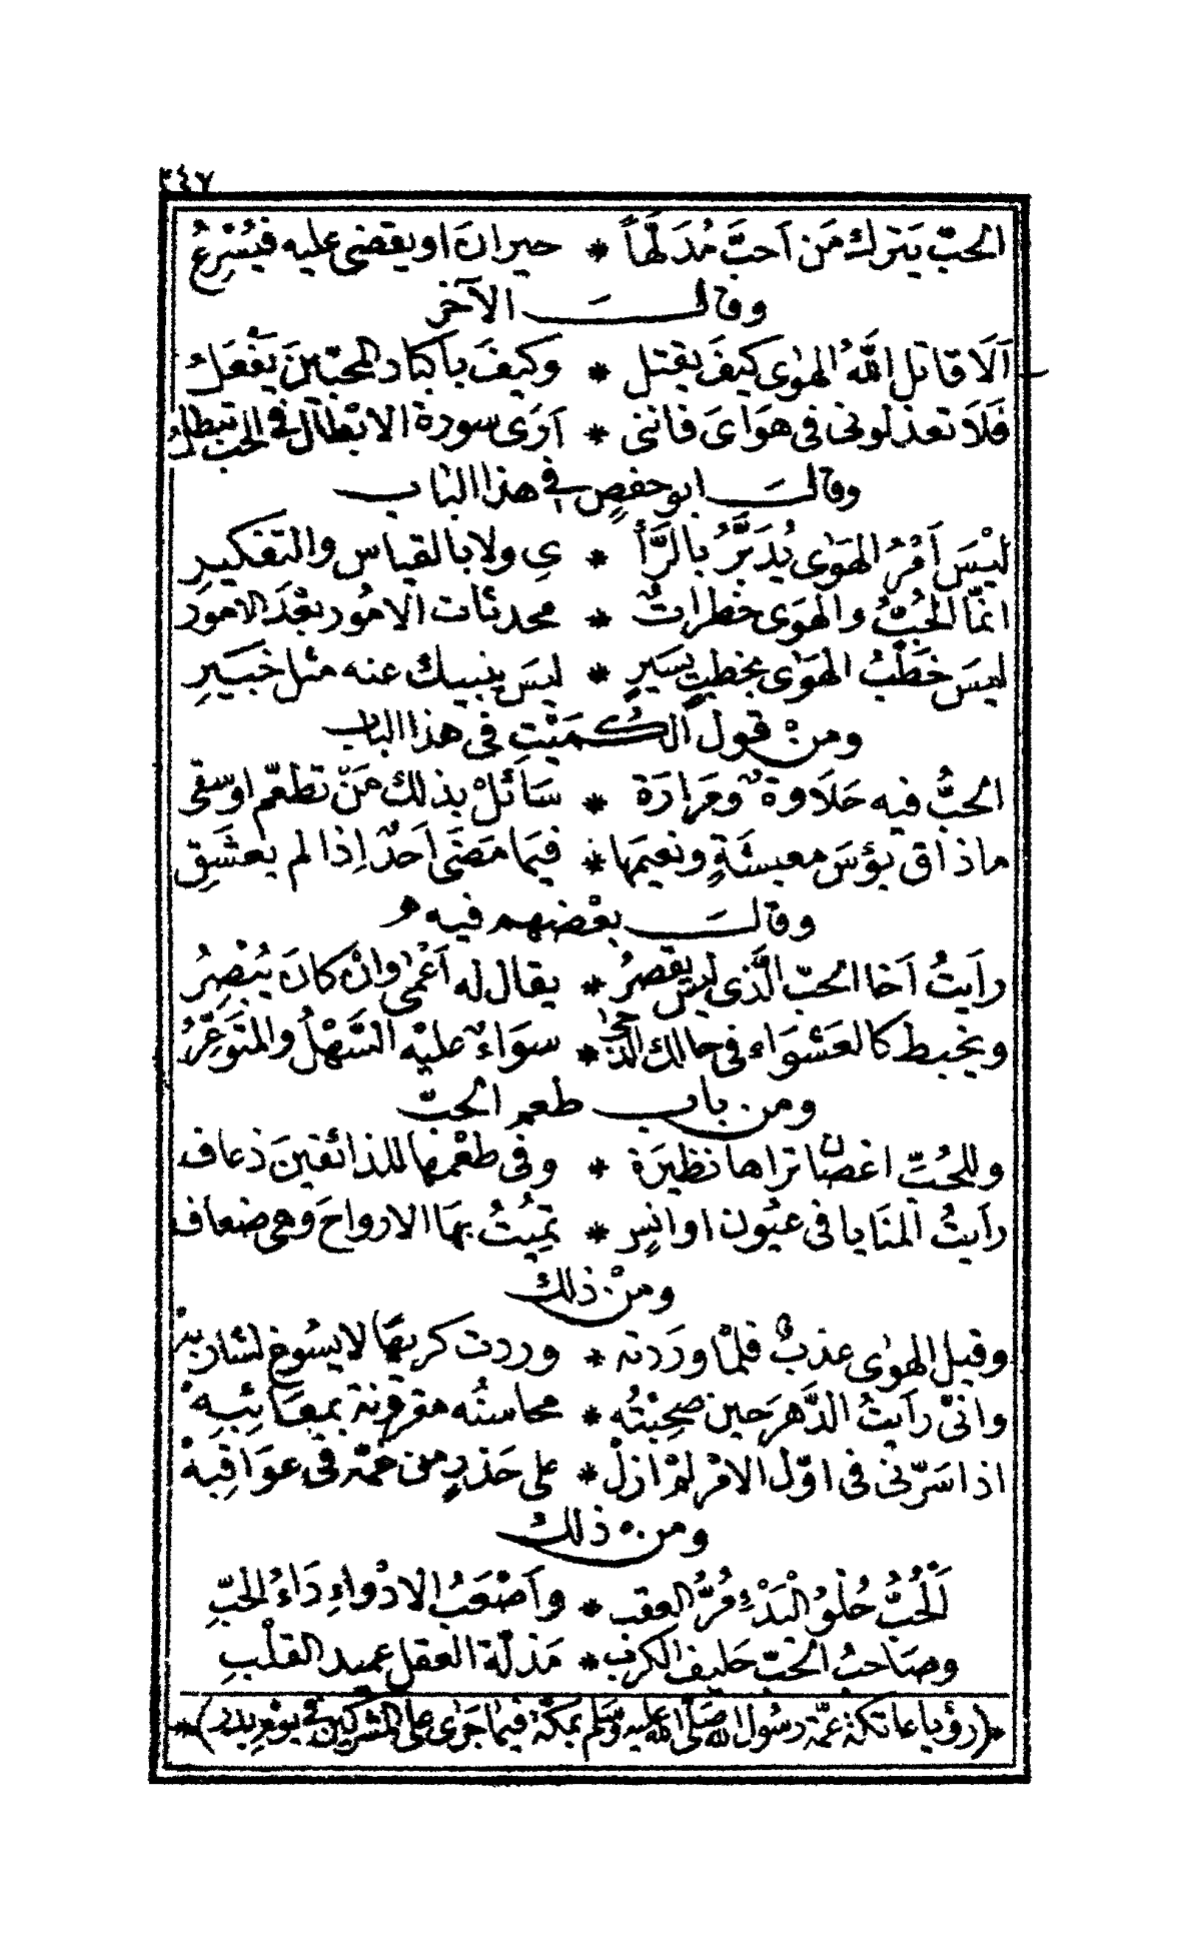 ٢٤٧
الحبّ يترك مَن اَحبَّ مُدَلَّهاً * حيرانَ او يقضى عليه فيُسْرِعُ
وقالَ الآخر
اَلَا قاتل اللّهُ الهوٰى كيفَ يقتل * وكيفَ باكباد المحبّينَ يَفْعَل
فَلَا تعذلونى فى هوَاىَ فاننى * اَرَى سورة الابْطَال فى الحب تبطل
وقالَ ابو حفصٍ فى هذا الباب
ليْسَ اَمْرُ الهوٰى يُدَبَّرُ بالرَّأْ * ىِ ولا بالقياس والتفكيرِ
انمّا الحُبُّ والهوَى خطراتٌ * محدثات الامُور بعْدَ الامور
ليسَ خَطْبُ الهوٰى بخطبٍ يسَيرٍ * ليسَ ينبيك عنه مثل خبَيرِ
ومنْ قول الكُمَيْتِ فى هذا الباب
الحبُّ فيه حَلَاوةٌ ومَرارَة * سَائلْ بذلك مَنّ تطعّم اوسّقى
ماذاق بؤسَ معيشَةٍ ونعيمَها * فيمَا مضَى اَحدٌ اِذا لم يعشَقِ
وقالَ بعْضهم فيه
راَيتُ اَخا الحبّ الَّذى ليس يقصرُ * يقال له اَعْمٰى وانْ كانَ يُبْصِرُ
ويخبط كالعَشْوَاء فى حالك الدّجٰى * سوَاءٌ عليْه السَّهْلُ والمتَوَعِّرُ
ومن باب طعم الحبّ
وللحُبِّ اغصَانٌ تراها نظيرَة * وفى طعْمها للذائقينَ ذعاف
راَيتُ اَلمنَايا فى عيُون اوانسٍ * تميُتُ بهَا الارواحَ وهى ضعاف
ومنْ ذلك
وقيل الهوٰى عذبٌ فلمّا ورَدته * ورَدت كريهًا لا يسُوغ لشاربِهْ
وانّىْ راَيتُ الدّهرَ حين صحِبْتُه * محاسنُه مقرُونة بمعَائِبِهْ
اذا سَرّنى فى اوّل الامْر لمْ ازلْ * على حَذرٍ من غمّه فى عوَاقبِهْ
ومنْ ذلك
اَلحُبُّ حُلْوُ الْبَدْءِ مُرُّ العقب * واَصْعَبُ الادْواءِ دَاءُ الحبِّ
وصَاحبُ الحبّ حَليف الكرب * مَذلّة العقل عميد القلْبِ
*(رؤيا عاتكة عمّة رسُول اللّه صَلّى اللّه عليه وَسَلم بمكّة فيمَا جَرٰى على المشركين فى يومِ بدر)*